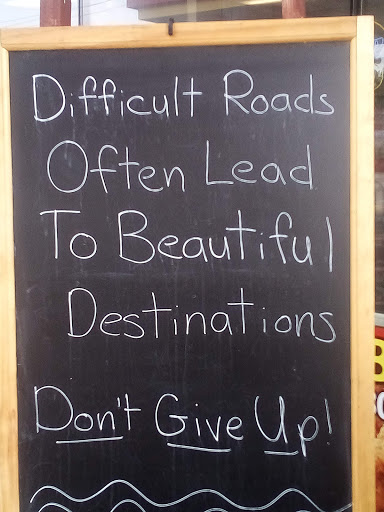 Difficult Roads
Often Lead
To Beautiful
Destinations
Don't Give Up!